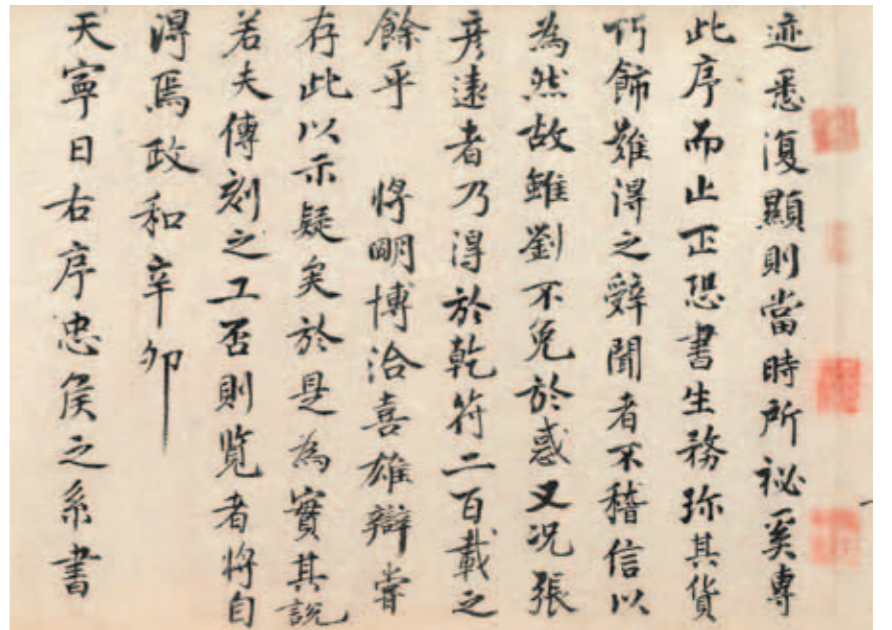 迹悉復顯則當時所祕奚專
此序而止正恐書生務珎其貨
巧飾難得之辭聞者不稽信以
為然故雖劉不免於惑又况張
彦遠者乃得於乾符二百載之
餘乎 將明博洽喜雄辯嘗
存此以示疑矣於是為實其説
若夫傳刻之工否則覧者將自
得焉政和辛卯
天寧日右序忠侯之系書